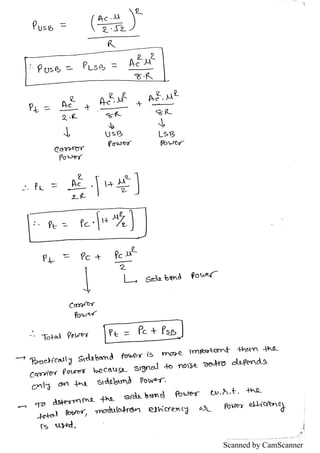 P_USB = (Ac·μ / 2·√2)² / R
∴ P_USB = P_LSB = Ac² μ² / 8·R
Pt = Ac² / 2·R + Ac²·μ² / 8R + Ac²·μ² / 8R
↓ ↓ ↓
Carrier Power USB Power LSB Power
∴ Pt = Ac² / 2R · [1 + μ²/2]
∴ Pt = Pc·[1 + μ²/2]
Pt = Pc + Pc μ² / 2
↓ Side band Power
Carrier
Power
∴ Total Power Pt = Pc + PSB
→ Practically Sideband Power is more important than the
Carrier Power because signal to noise ratio depends
only on the Sideband Power.
→ To determine the side band Power w.r.t. the
total Power, modulation efficiency or Power efficiency
is used.
Scanned by CamScanner